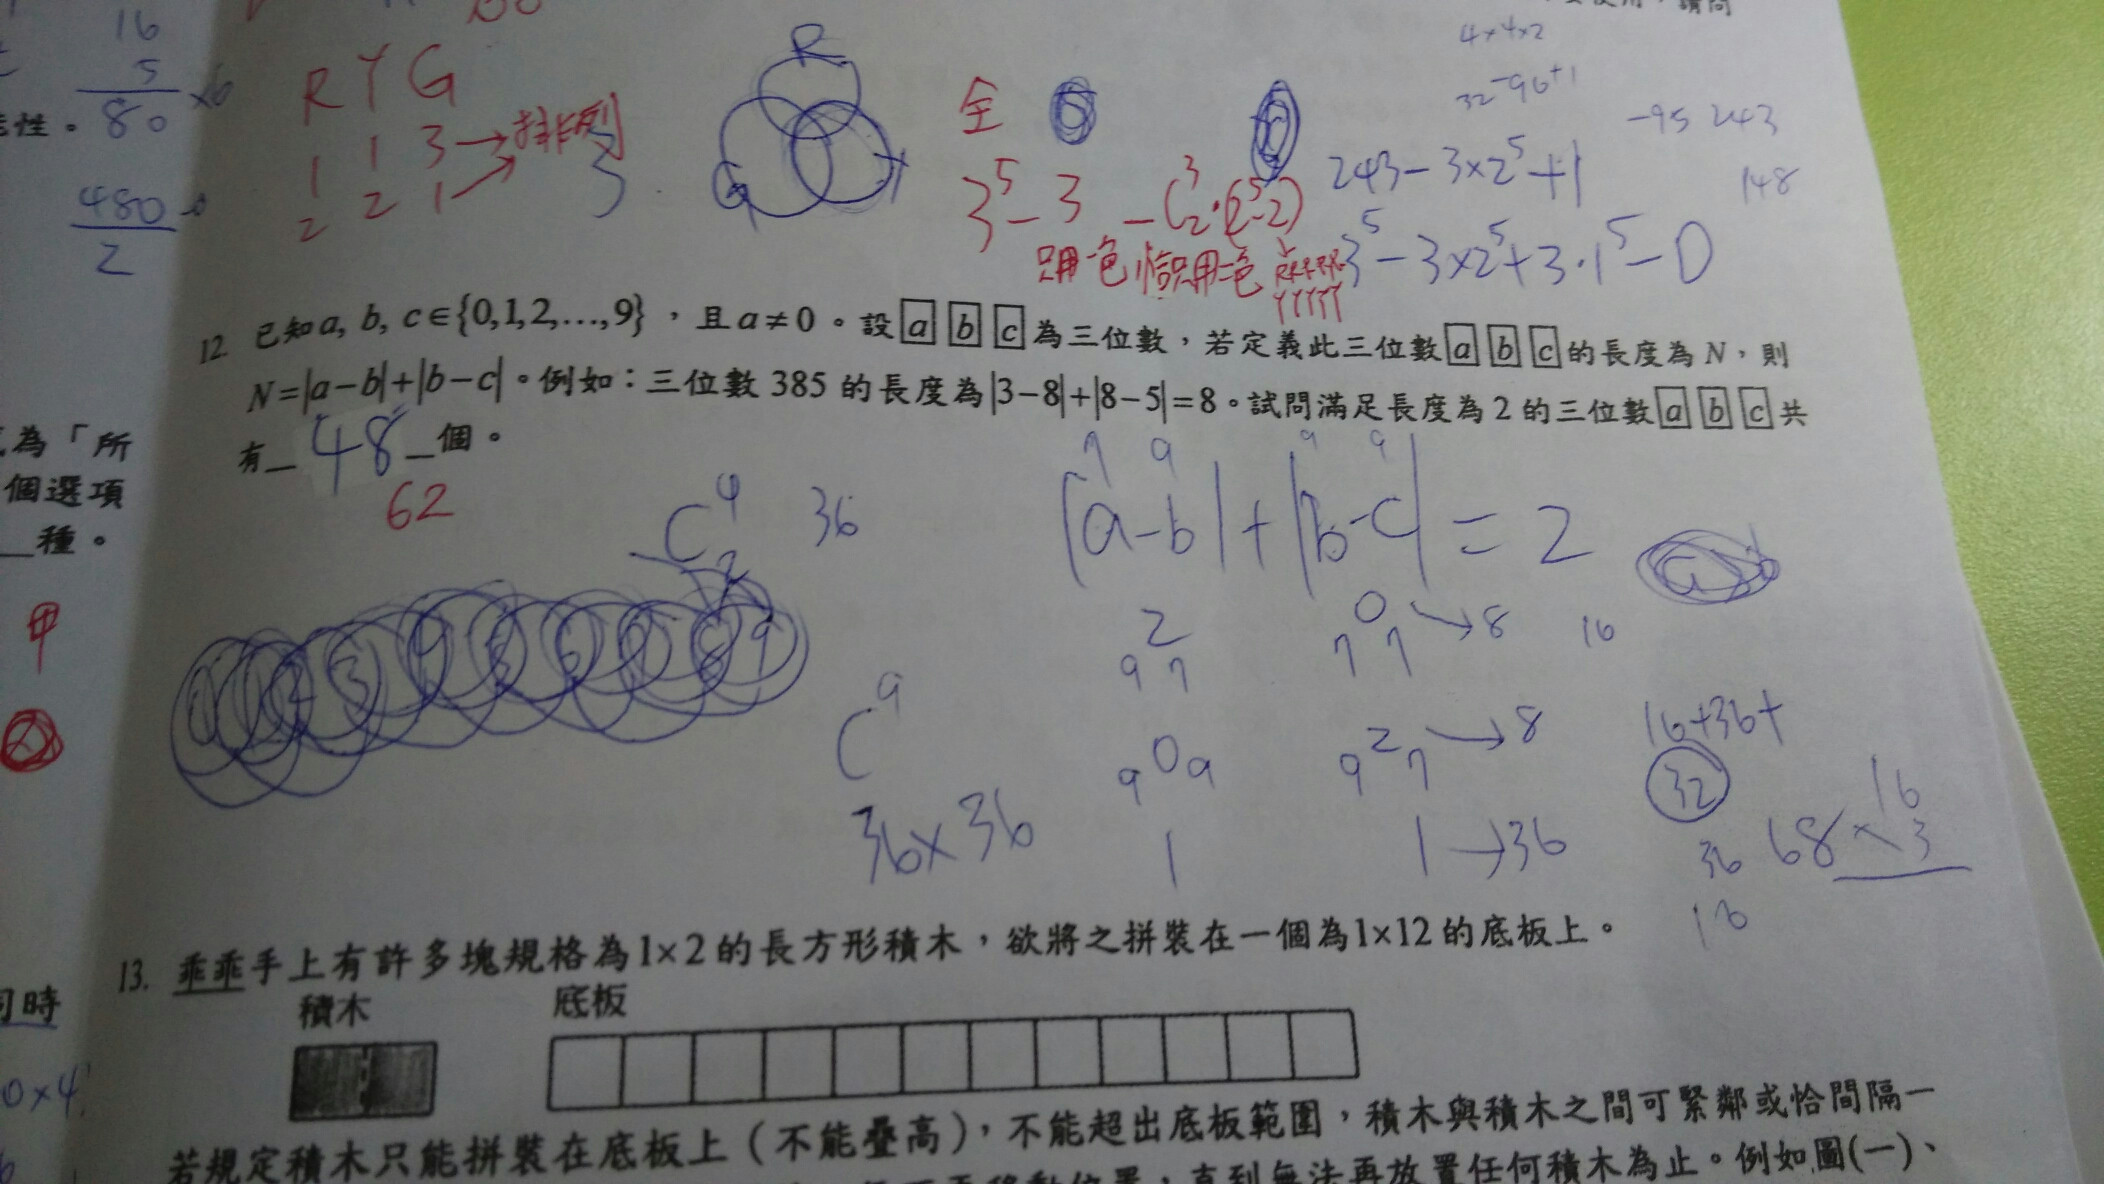 16
5
80 ×6
480
2
能性。
R Y G
1 1 3 → 排列
1
2 2 1
3
R
G
Y
全
3⁵ - 3 - C³₂·(2⁵-2)
只用一色 恰只用二色
YYYYY
4×4×2
32 -96+1
-95 243
148
243 - 3×2⁵ + 1
3⁵ - 3×2⁵ + 3·1⁵ - 0
12. 已知a, b, c∈{0,1,2,…,9},且a≠0。設[a][b][c]為三位數,若定義此三位數[a][b][c]的長度為N,則
N=|a-b|+|b-c|。例如:三位數385的長度為|3-8|+|8-5|=8。試問滿足長度為2的三位數[a][b][c]共
有_48_個。
62
為「所
個選項
種。
甲
同時
0×4
C⁴₂ 36
|a-b|+|b-c|=2
2
9 7
0
7 7 → 8 16
C⁹
0
9 9
2
9 7 → 8
16+36+
32
36×36
1
1 → 36
36 68
16
× 3
16
13. 乖乖手上有許多塊規格為1×2的長方形積木,欲將之拼裝在一個為1×12的底板上。
積木 底板
若規定積木只能拼裝在底板上(不能疊高),不能超出底板範圍,積木與積木之間可緊鄰或恰間隔一
移動位置,直到無法再放置任何積木為止。例如圖(一)、